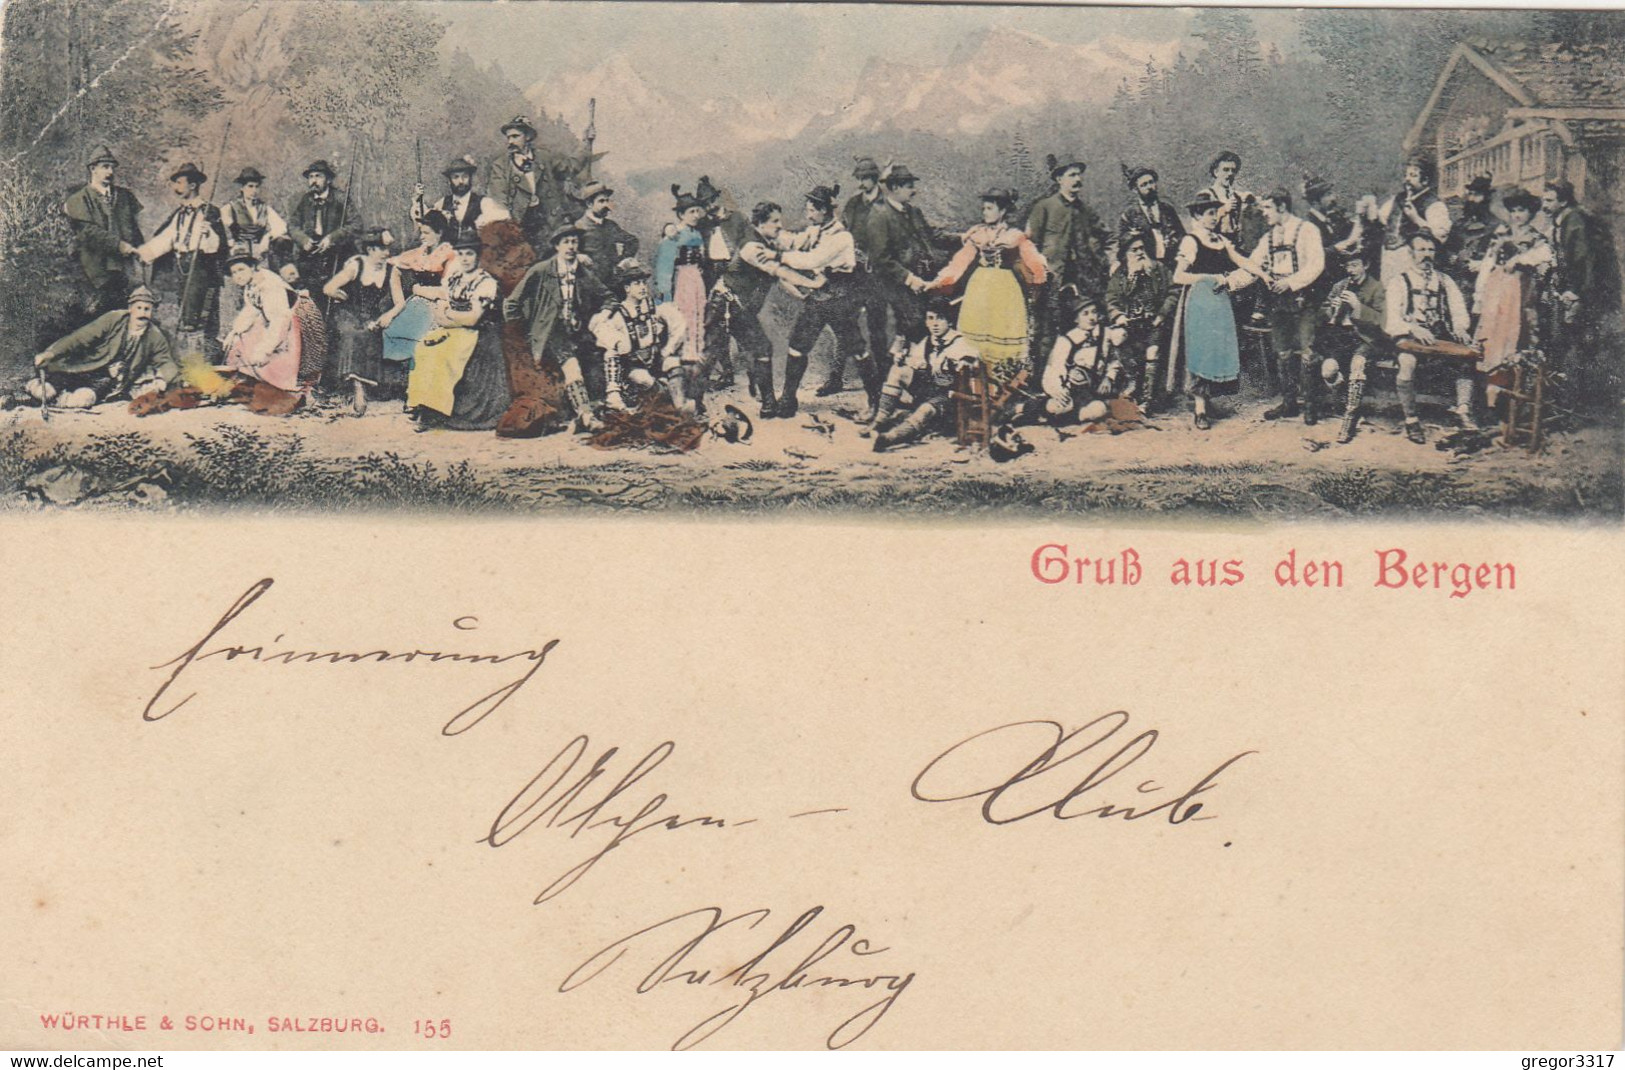 Gruß aus den Bergen
Erinnerung
Alpen- – Club.
Salzburg
WÜRTHLE & SOHN, SALZBURG. 155
www.delcampe.net
gregor3317